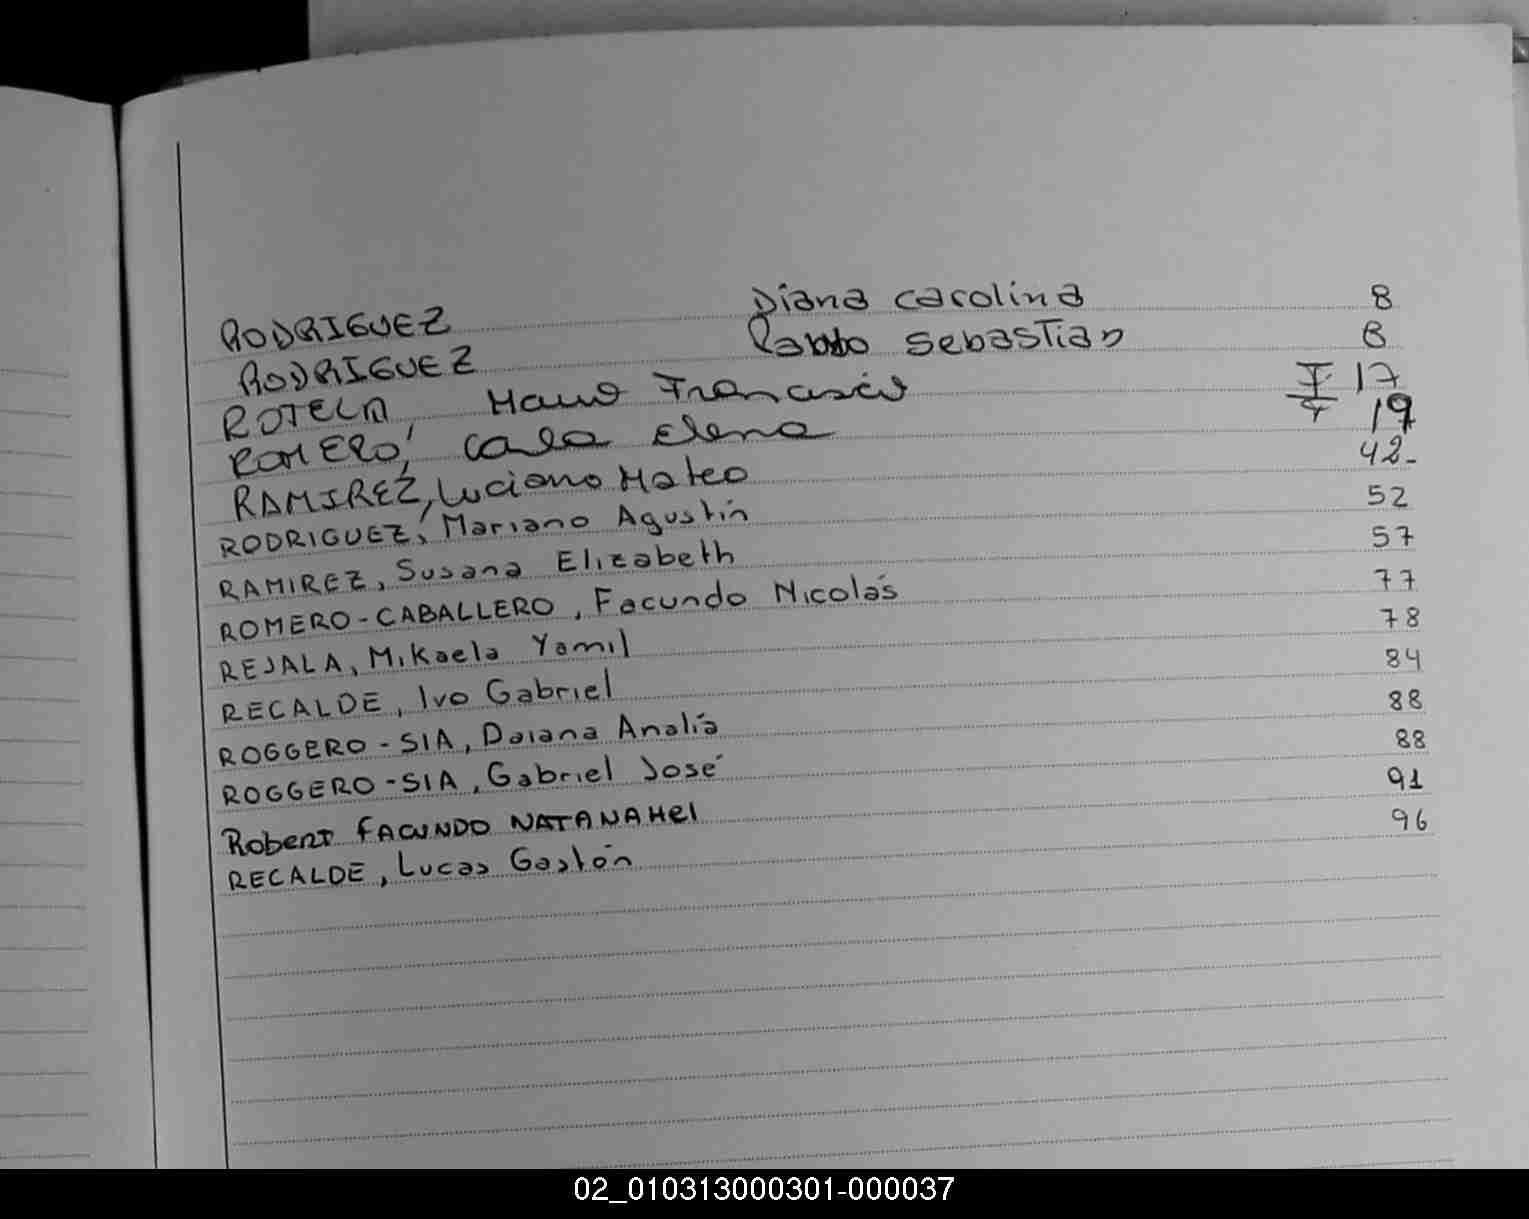 RODRIGUEZ Diana Carolina 8
RODRIGUEZ Pablo Sebastian 8
ROTELA Mauro Francisco 17
ROMERO, Carla Elena 19
RAMIREZ, Luciano Mateo 42-
RODRIGUEZ, Mariano Agustín 52
RAMIREZ, Susana Elizabeth 57
ROMERO-CABALLERO, Facundo Nicolás 77
REJALA, Mikaela Yamil 78
RECALDE, Ivo Gabriel 84
ROGGERO-SIA, Daiana Analía 88
ROGGERO-SIA, Gabriel José 88
Robert FACUNDO NATANAHel 91
RECALDE, Lucas Gastón 96
02_010313000301-000037